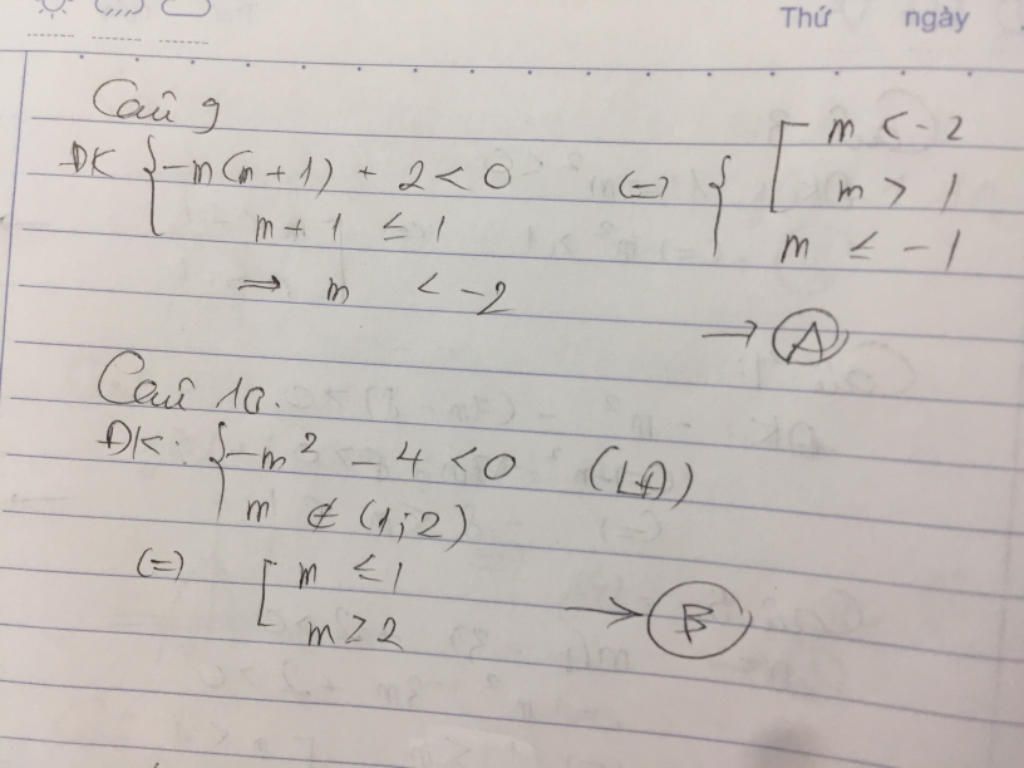 Thứ ngày
Câu 9
ĐK { -m(m+1) + 2 < 0 (=) { [ m < -2
m > 1
m + 1 ≤ 1 m ≤ -1
→ m < -2
→ A
Câu 10.
ĐK: { -m² - 4 < 0 (LĐ)
m ∉ (1;2)
(=) [ m ≤ 1
m ≥ 2 → B